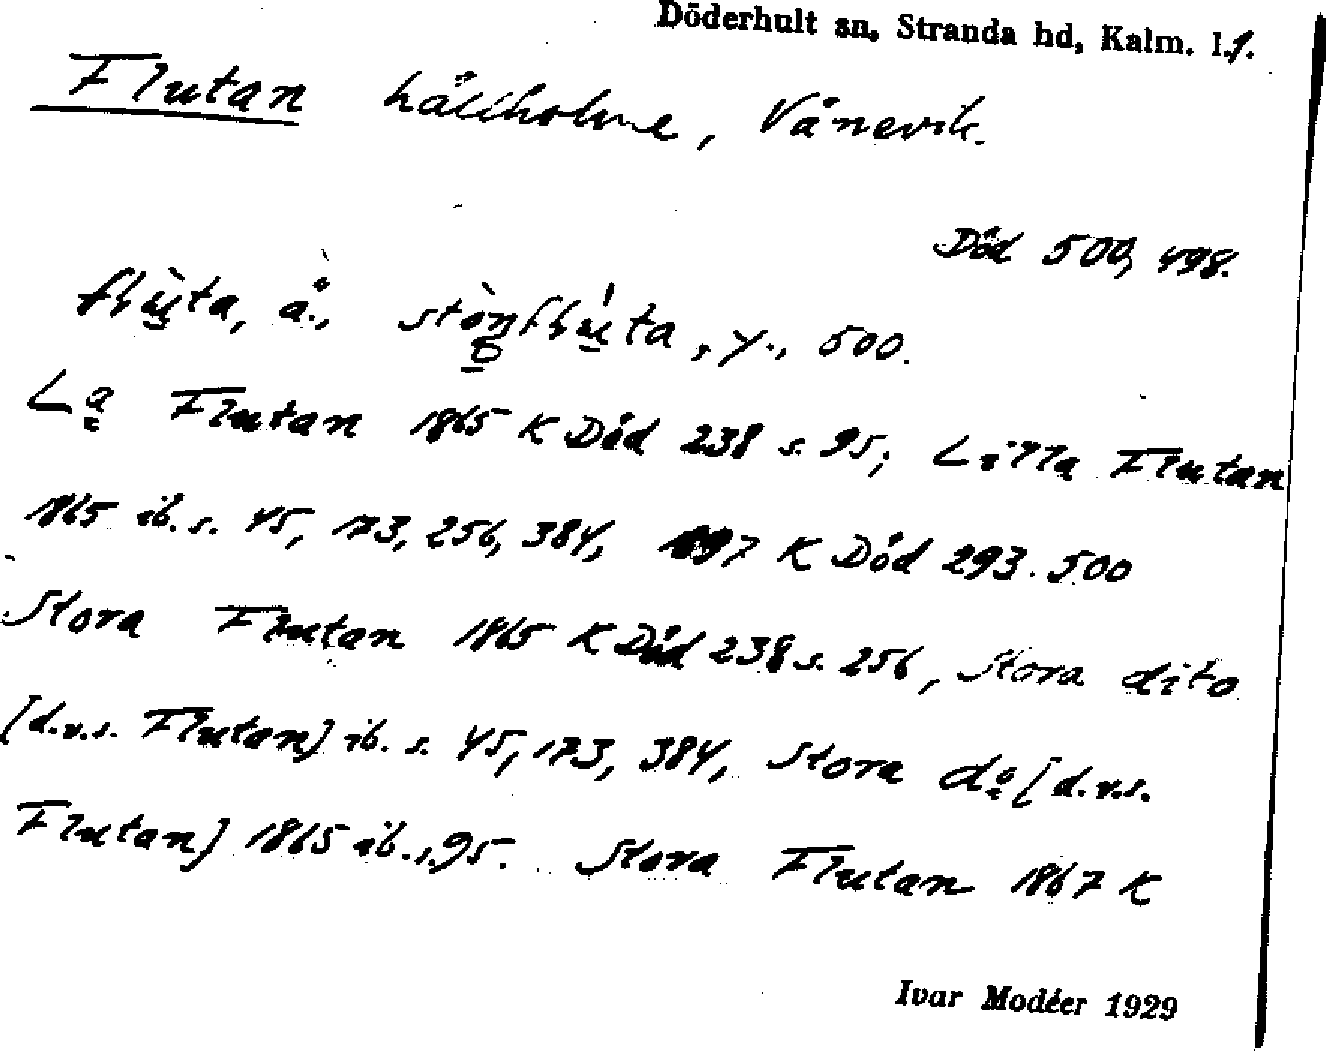 Döderhult sn, Stranda hd, Kalm. l. 1.
Flutan hällholme, Vånevik.
Död 500, 498.
flù̱ta, å., stò̱rflú̱ta, y., 500.
La Flutan 1865 K Död 238 s. 95; Lilla Flutan
1865 ib. s. 45, 173, 256, 384, 1897 K Död 293. 500
Stora Flutan 1865 K Död 238 s. 256, Stora dito
[d.v.s. Flutan] ib. s. 45, 173, 384, Stora do [d.v.s.
Flutan] 1865 ib. s. 95. Stora Flutan 1867 K
Ivar Modéer 1929